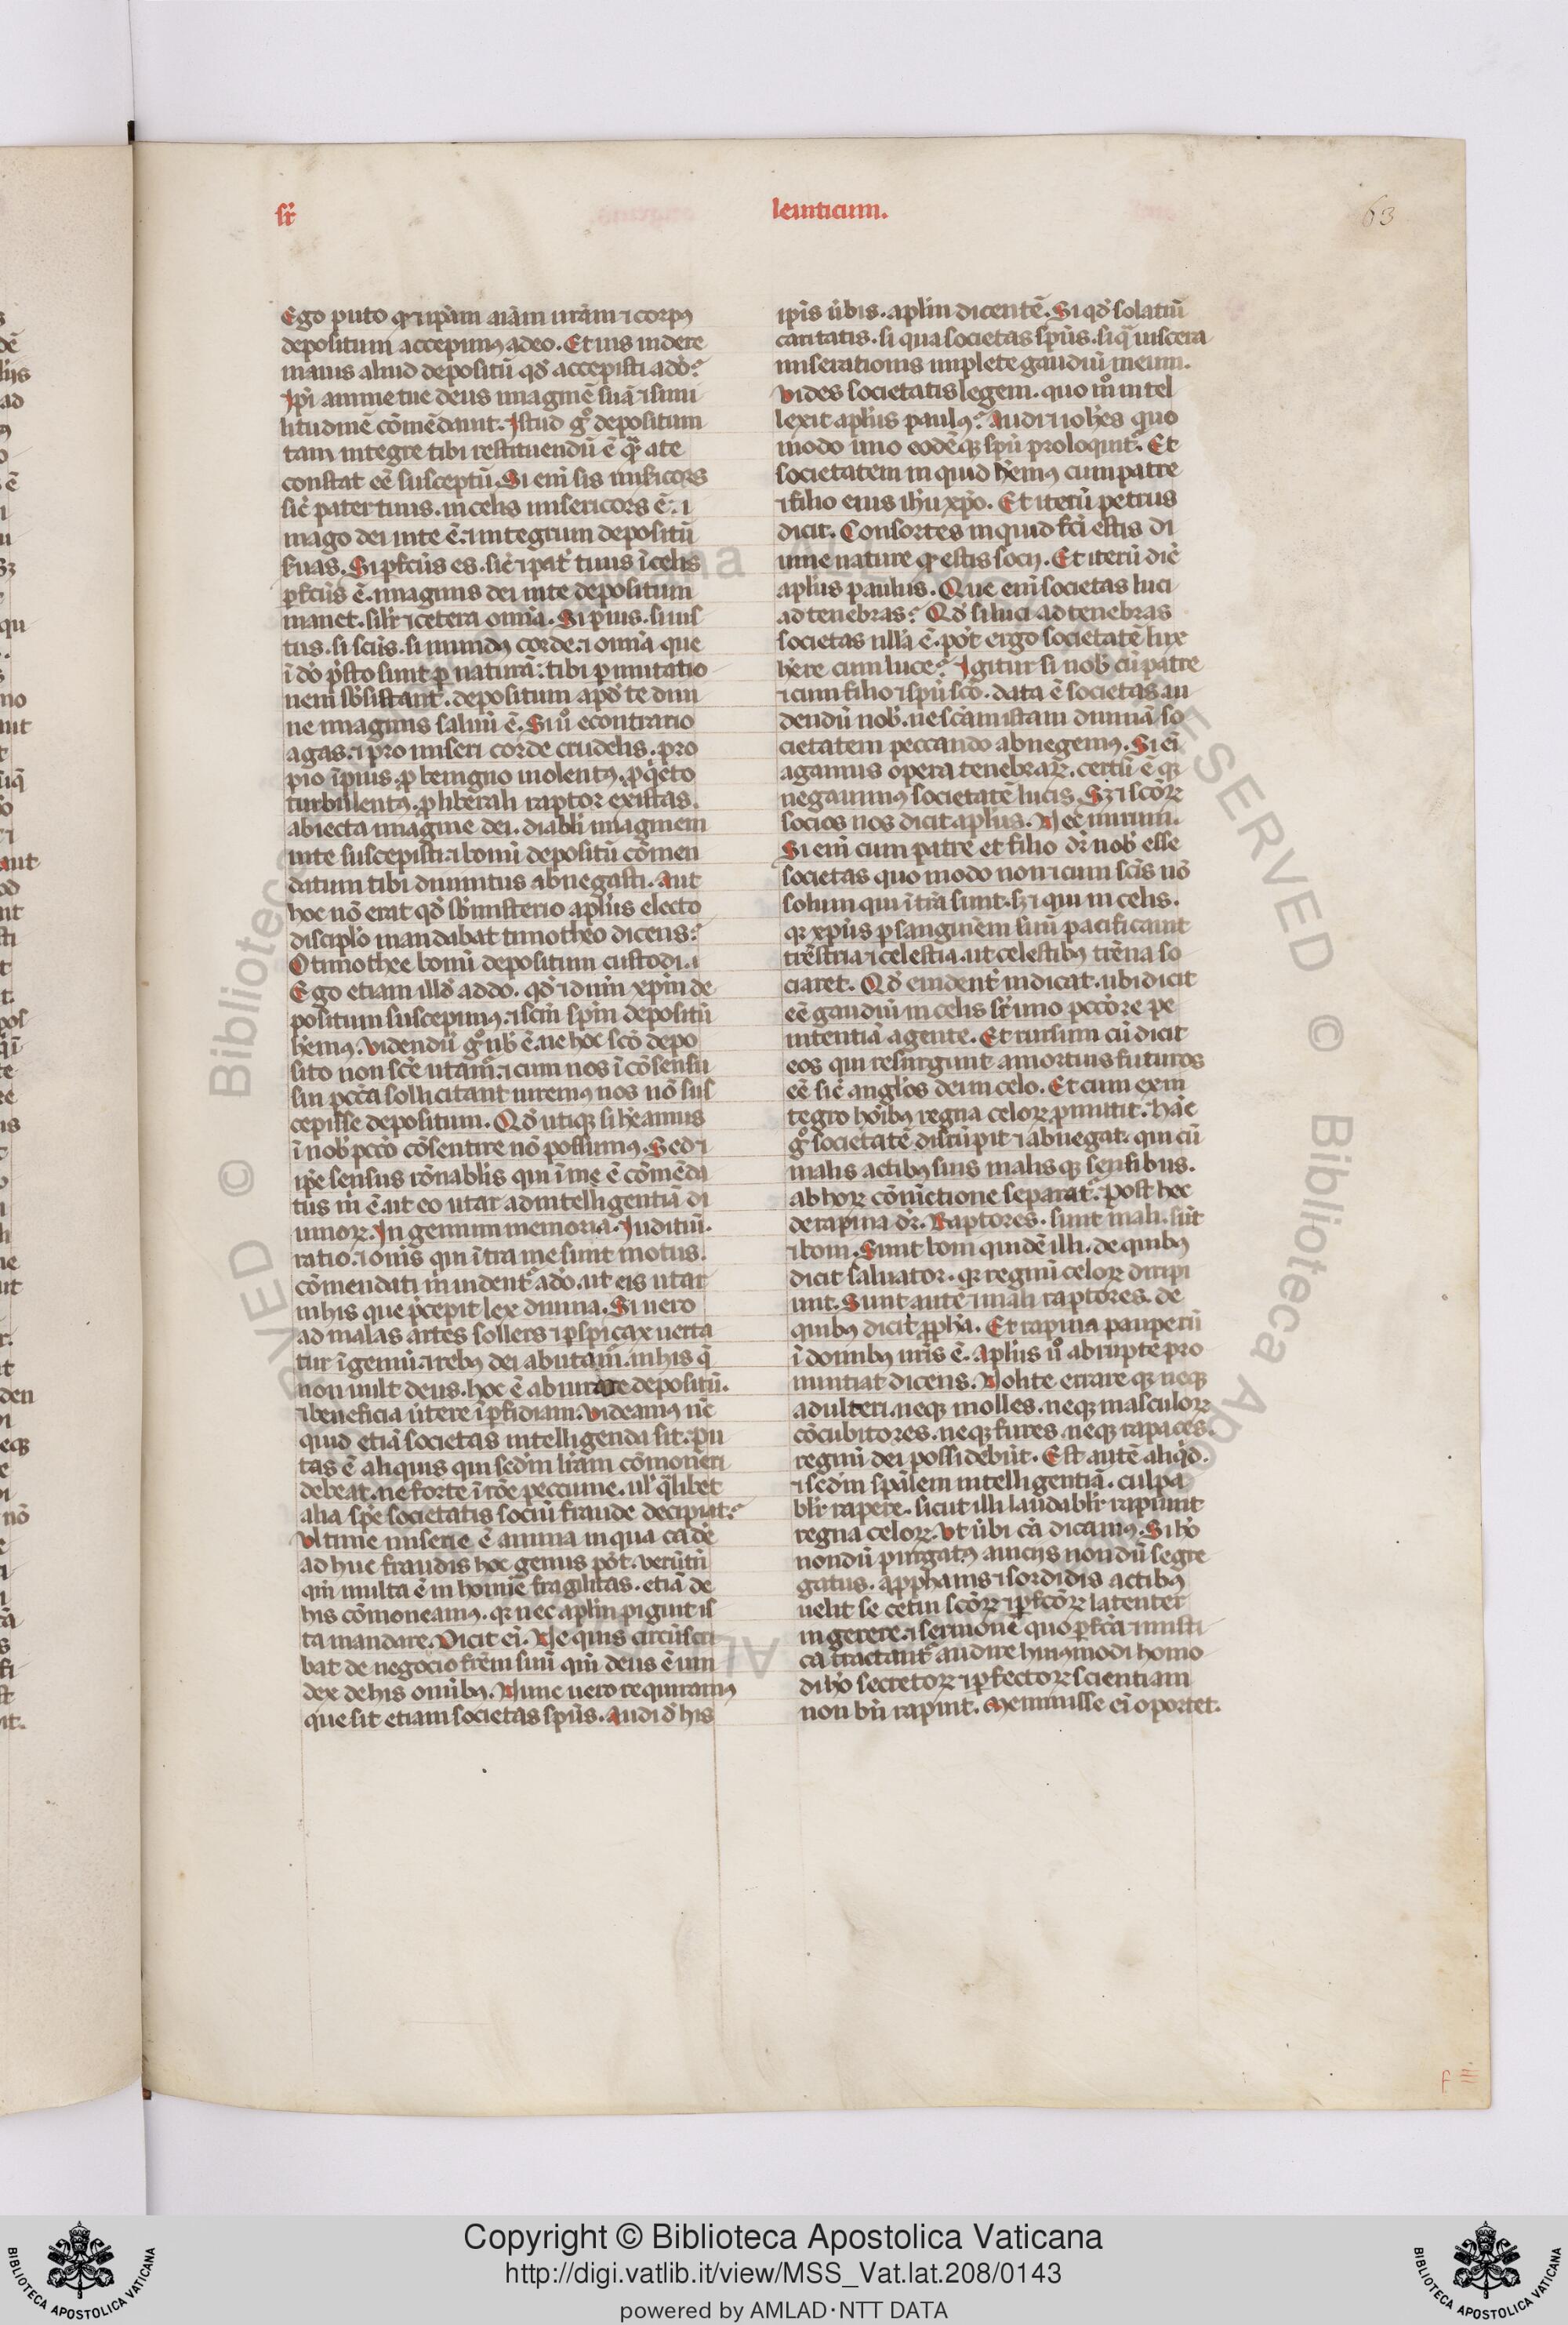 sr̄
leuiticum.
63
Ego puto qr̄ ⁊ ip̄am aīam nr̄am ⁊ corpꝰ
depositum accepimꝰ a deo. Et uis uidere
maius aliud depositū qđ accepisti a dō?
Ip̄i anime tue deus imaginē suā ⁊ simi
litudinē cōmēdauit. Istud gͦ depositum
tam integre tibi restituendū ē qr̄ a te
constat eē susceptū. Si enī sis mīsricors
sic̄ pater tuus in celis misericors ē. i
mago dei in te ē. ⁊ integrum depositū
s̄uas. Si ꝑfc̄us es. sic̄ ⁊ pat̄ tuus ī celis
ꝑfc̄us ē. imaginis dei in te depositum
manet. sil̄r ⁊ cetera omīa. Si pius. si iuſ
tus. si sc̄us. si mundꝰ corde. ⁊ omīa que
ī dō p̄sto sunt ꝑ naturā. tibi ꝑ imitatio
nem sb̄sistant. depositum apđ te diui
ne imaginis saluū ē. Si uͦ econtrario
agas. ⁊ pro miseri corde crudelis. pro
pio īpius. ꝓ benigno uiolentꝰ. ꝓ q̄eto
turbulentꝰ. ꝓ liberali raptor existas.
abiecta imagine dei. diabli imaginem
in te suscepisti. ⁊ bonū depositū cōmen
datum tibi diuinitus abnegasti. Aut
hoc nō erat qđ sb̄ misterio apl̄us electo
discipl̄o mandabat timotheo dicens?
O timothee bonū depositum custodi.
Ego etiam illđ addo. qđ ⁊ dnm̄ xp̄m de
positum suscepimꝰ. ⁊ scm̄ sp̄m depositū
hēmꝰ. Videndū gͦ nob̄ ē. ne hoc sc̄o depo
sito non sc̄e utam̄. ⁊ cum nos ī cōsensū
suū pcc̄a sollicitant iuremꝰ nos nō sus
cepisse depositum. Qđ utiqꝫ si hēamus
ī nob̄ pccō cōsentire nō possumꝰ. Sed ⁊
ip̄e sensus rōnabl̄is qui ī me ē cōmēda
tus m̄ ē. ut eo utar ad intelligentiā di
uinoꝝ. Ingenium memoria. Iuditiū.
ratio. ⁊ oīnis qui ītra me sunt motus.
cōmendati m̄ uident̄ a dō. ut eis utar
in his que p̄cepit lex diuina. Si uero
ad malas artes sollers ⁊ ꝑspicax uerta
tur īgeniū. ⁊ rebꝰ dei abutam̄. in his q̄
non uult deus. hoc ē abiurare depositū.
⁊ beneficia ūtere ī ꝑfidiam. Videamꝰ nē
quid etiā societas intelligenda sit. pu
tas ē aliquis qui scdm̄ lr̄am cōmoneri
debeat. ne forte ī rōe peccunie. ul̄ q̄libet
alia sp̄e societatis sociū fraude decipiat?
Vltime miserie ē anima in qua cadē
ad huc fraudis hoc genus pōt. verūtn̄
qm̄ multa ē in homīe fragilitas. etiā de
his cōmoneamꝰ. qr̄ nec apl̄m piguit is
ta mandare. Dicit ei. Ne quis circūscri
bat de negocio frēm suū qm̄ deus ē uin
dex de his omībꝰ. Nunc uero requiramꝰ
que sit etiam societas sp̄us. Audi đ his
ip̄is ūbis. apl̄m dicentē. Si qđ solatiū
caritatis. si qua societas sp̄us. siq̄ uiscera
miserationis implete gaudiū meum.
Vides societatis legem. quo mͦ intel
lexit apl̄us paulꝰ? Audi ⁊ iohēs quo
modo uno eodēqꝫ sp̄u proloquit̄. Et
societatem inquid hēmꝰ cum patre
⁊ filio eius ih̄u xp̄o. Et iterū petrus
dicit. Consortes inquid fc̄i estis di
uine nature qr̄ estis socij. Et iterū dic̄
apl̄us paulus. Que enī societas luci
ad tenebras? Qđ si luci ad tenebras
societas nulla ē. pōt ergo societatē lux
hēre cum luce? Igitur si nob̄ cū patre
⁊ cum filio ⁊ sp̄u sc̄o. data ē societas ui
dendū nob̄. ne sc̄am istam diuinā so
cietatem peccando abnegemꝰ. Si eī
agamus opera tenebraꝝ. certū ē qr̄
negauimꝰ societatē lucis. Sꝫ ⁊ sc̄oꝝ
socios nos dicit apl̄us. Nec mirum.
Si enī cum patre et filio dr̄ nob̄ esse
societas quo modo non ⁊ cum sc̄is nō
solum qui ī tr̄a sunt. sꝫ ⁊ qui in celis.
qr̄ xp̄us ꝑ sanguinem suū pacificauit
tr̄estria ⁊ celestia. ut celestibꝰ tr̄ena so
ciaret. Qđ euident̄ indicat. ubi dicit
eē gaudiū in celis sr̄ uno pccōre pe
nitentiā agente. Et rursum cū dicit
eos qui resurgunt a mortuis futuros
eē sic̄ angl̄os dei in celo. Et cum ex in
tegro hoībꝰ regna celoꝝ ꝓmittit. Hāc
gͦ societatē disrūpit ⁊ abnegat. qui cū
malis actibꝰ suis malisqꝫ sensibus.
ab hoꝝ cōiūctione separat̄. Post hec
de rapina dr̄. Raptores. sunt mali. sūt
⁊ boni. Sunt boni quidē illi. de quibꝰ
dicit saluator. qr̄ regnū celoꝝ diripi
unt. Sunt autē ⁊ mali raptores. de
quibꝰ dicit ꝓpha. Et rapina pauperū
ī domibꝰ uris ē. Apl̄us uͦ abrupte pro
nuntiat dicens. Nolite errare qr̄ neqꝫ
adulteri. neqꝫ molles. neqꝫ masculoꝝ
cōcubitores. neqꝫ fures neqꝫ rapaces.
regnū dei possidebūt. Est autē aliqđ.
⁊ scdm̄ sp̄alem intelligentiā. culpa
bl̄ir rapere. sicut illi laudabl̄ir rapiunt
regna celoꝝ. Vt ūbi cā dicamꝰ. Si hō
nondū purgatꝰ a uicijs nondū segre
gatus. a ꝓphanis ⁊ sordidis actibꝰ
uelit se cetui sc̄oꝝ ⁊ ꝑfc̄oꝝ latenter
ingerere. ⁊ sermonē quo ꝑfc̄a ⁊ misti
ca tractant̄ audire huiꝰmodi homo
di hō secretoꝝ ⁊ ꝑfectoꝝ scientiam
non bn̄ rapuit. Meminisse ei oportet.
Copyright © Biblioteca Apostolica Vaticana
http://digi.vatlib.it/view/MSS_Vat.lat.208/0143
powered by AMLAD·NTT DATA